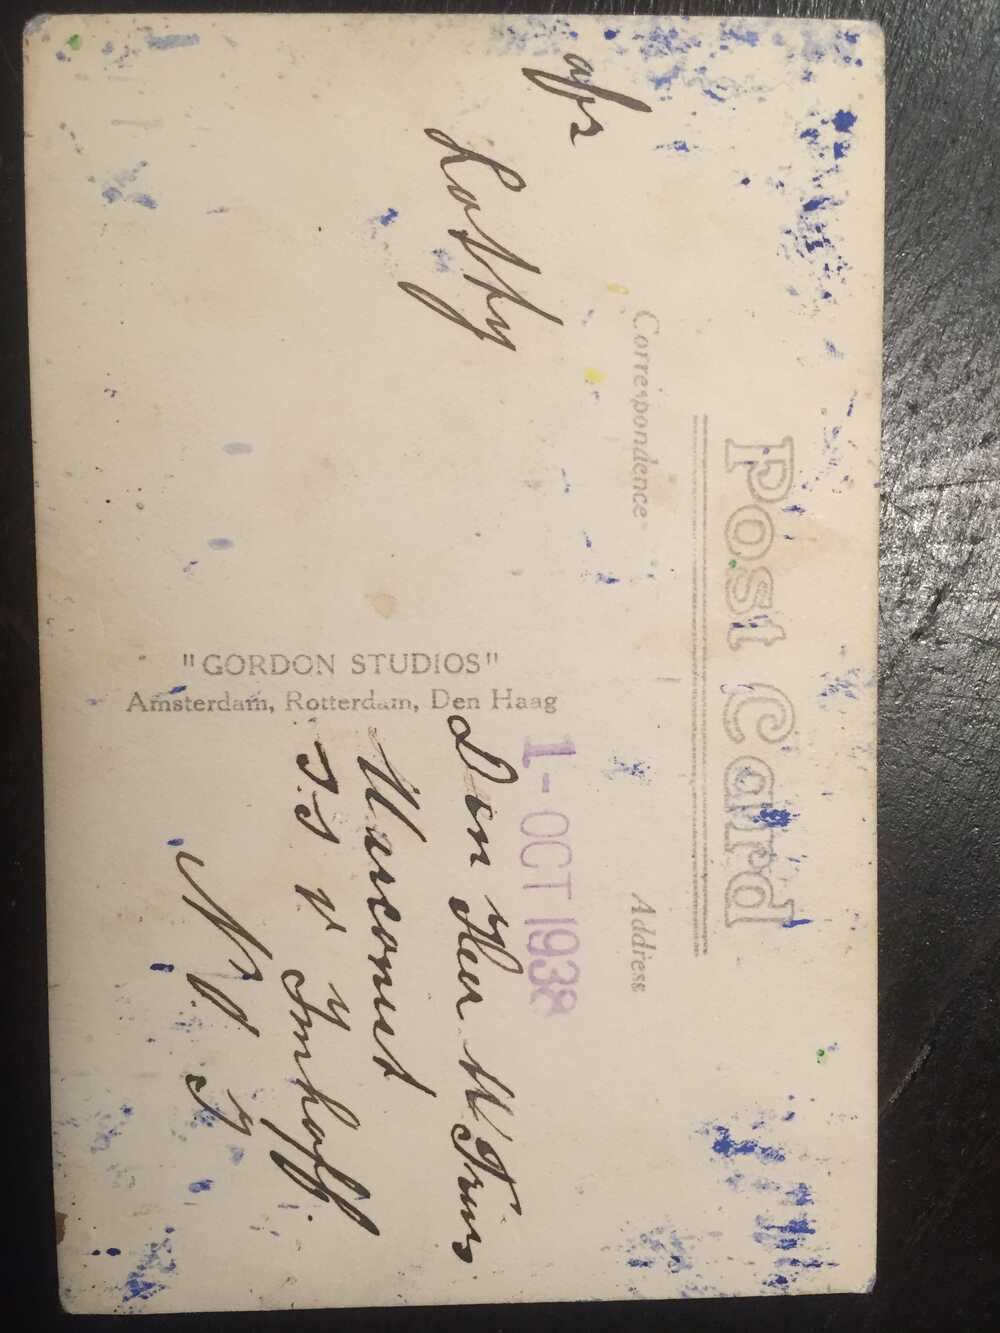 Post Card
Correspondence
Address
afz
Lotty
1-OCT 1938
Den Heer W
Marconist
s.s v Imhoff.
N J
"GORDON STUDIOS"
Amsterdam, Rotterdam, Den Haag